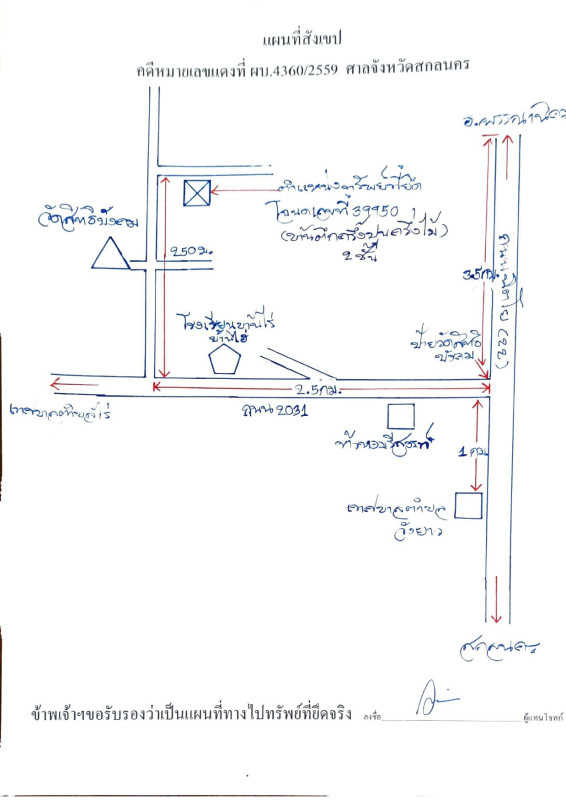 แผนที่สังเขป
คดีหมายเลขแดงที่ ผบ.4360/2559 ศาลจังหวัดสกลนคร
อ.พรรณานิคม
ตำแหน่งทรัพย์ที่ยึด
โฉนดเลขที่ 39950
(บ้านตึกครึ่งปูนครึ่งไม้)
2 ชั้น
วัดสิทธิบังคม
250 ม.
3.5 กม.
ถนนนิตโย (22)
โรงเรียนบ้านไร่
บ้านไร่
ป้ายวัดสิทธิ
บังคม
2.5 กม.
เทศบาลตำบลไร่
ถนน 2031
รีสอร์ท
1 กม.
เทศบาลตำบล
วังยาว
สกลนคร
ข้าพเจ้าฯขอรับรองว่าเป็นแผนที่ทางไปทรัพย์ที่ยึดจริง ลงชื่อ ผู้แทนโจทก์